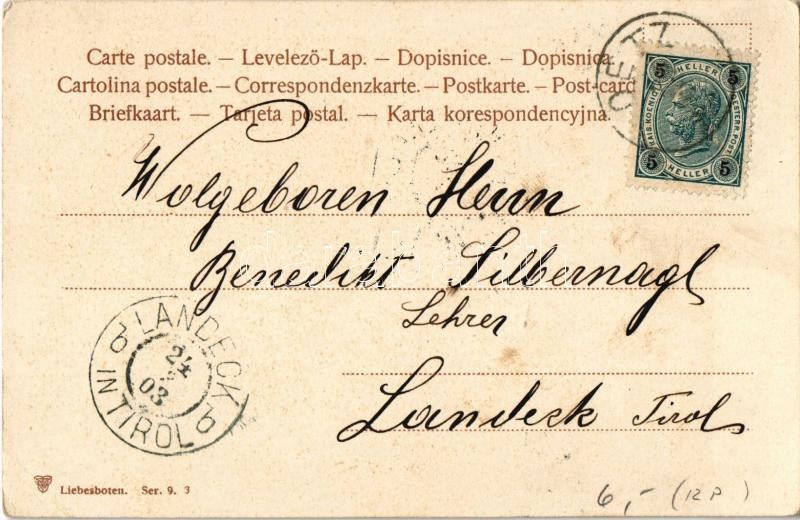 Carte postale. – Levelezö-Lap. – Dopisnice. – Dopisnica.
Cartolina postale. – Correspondenzkarte. – Postkarte. – Post-card
Briefkaart. – Tarjeta postal. – Karta korespondencyjna.
OETZ
5 HELLER 5
KAIS. KOENIGL. OESTERR. POST
5 HELLER 5
Wolgeboren Herrn
Benedikt Silbernagl
Lehrer
Landeck Tirol
LANDECK
24
03
b IN TIROL b
Liebesboten. Ser. 9. 3
6,- (12 P)